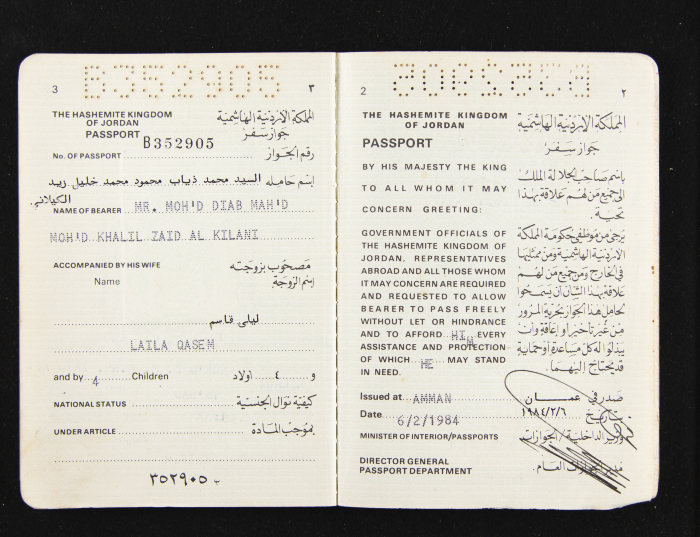 3
B352905
٣
THE HASHEMITE KINGDOM
OF JORDAN
PASSPORT
المملكة الأردنية الهاشمية
جواز سفر
No. OF PASSPORT B352905 رقم الجواز
اسم حامله السيد محمد ذياب محمود محمد خليل زيد
الكيلاني
NAME OF BEARER MR. MOH'D DIAB MAH'D
MOH'D KHALIL ZAID AL KILANI
ACCOMPANIED BY HIS WIFE مصحوب بزوجته
Name اسم الزوجة
ليلى قاسم
LAILA QASEM
and by 4 Children و ٤ اولاد
NATIONAL STATUS كيفية نوال الجنسية
UNDER ARTICLE بموجب المادة
ب ٣٥٢٩٠٥
2
٢
THE HASHEMITE KINGDOM
OF JORDAN
PASSPORT
BY HIS MAJESTY THE KING
TO ALL WHOM IT MAY
CONCERN GREETING:
GOVERNMENT OFFICIALS OF
THE HASHEMITE KINGDOM OF
JORDAN, REPRESENTATIVES
ABROAD AND ALL THOSE WHOM
IT MAY CONCERN ARE REQUIRED
AND REQUESTED TO ALLOW
BEARER TO PASS FREELY
WITHOUT LET OR HINDRANCE
AND TO AFFORD HIM EVERY
ASSISTANCE AND PROTECTION
OF WHICH HE MAY STAND
IN NEED.
المملكة الأردنية الهاشمية
جواز سفر
باسم صاحب الجلالة الملك
الى جميع من لهم علاقة بهذا
تحية.
يرجى من موظفي حكومة المملكة
الأردنية الهاشمية ومن ممثليها
في الخارج ومن جميع من لهم
علاقة بهذا الشأن أن يسمحوا
لحامل هذا الجواز بحرية المرور
من غير تأخير او إعاقة وان
يبذلوا له كل مساعدة او حماية
قد يحتاج اليهما.
Issued at AMMAN صدر في عمان
Date 6/2/1984 بتاريخ ١٩٨٤/٢/٦
MINISTER OF INTERIOR/PASSPORTS وزير الداخلية/الجوازات
DIRECTOR GENERAL
PASSPORT DEPARTMENT
مدير الجوازات العام.